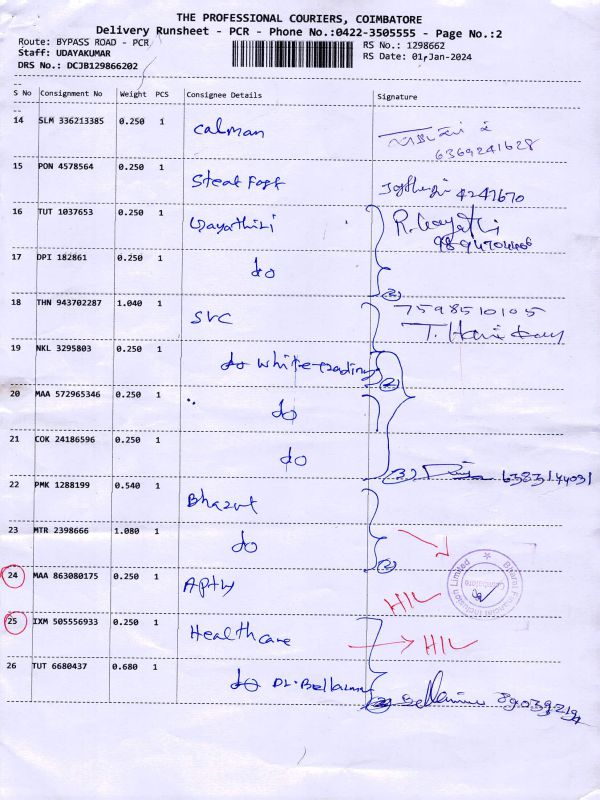 THE PROFESSIONAL COURIERS, COIMBATORE
Delivery Runsheet - PCR - Phone No.:0422-3505555 - Page No.:2
Route: BYPASS ROAD - PCR
RS No.: 1298662
Staff: UDAYAKUMAR
RS Date: 01-Jan-2024
DRS No.: DCJB129866202
S No Consignment No Weight PCS Consignee Details Signature
14 SLM 336213385 0.250 1 Calman
6369241628
15 PON 4578564 0.250 1 4247670
16 TUT 1037653 0.250 1 Gayathiri R. Gayathri
17 DPI 182861 0.250 1 do (2)
18 THN 943702287 1.040 1 SVC 7598510105
19 NKL 3295803 0.250 1 do White trading (2)
20 MAA 572965346 0.250 1 do
21 COK 24186596 0.250 1 do (3)
22 PMK 1288199 0.540 1 Bharat
23 MTR 2398666 1.080 1 do (2)
24 MAA 863080175 0.250 1 HIL
Bharat Financial Inclusion Limited
Coimbatore
25 IXM 505556933 0.250 1 Healthcare HIL
26 TUT 6680437 0.680 1 do Dr. Bellarmin